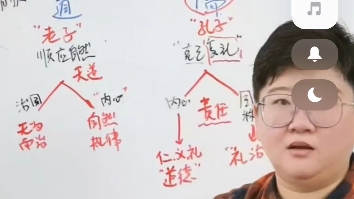 道
"老子"
"顺应自然"
天道
治国
无为
而治
"内心"
自然
规律
"孔子"
克己复礼
责任
内心
仁义礼
"道德"
"礼治"